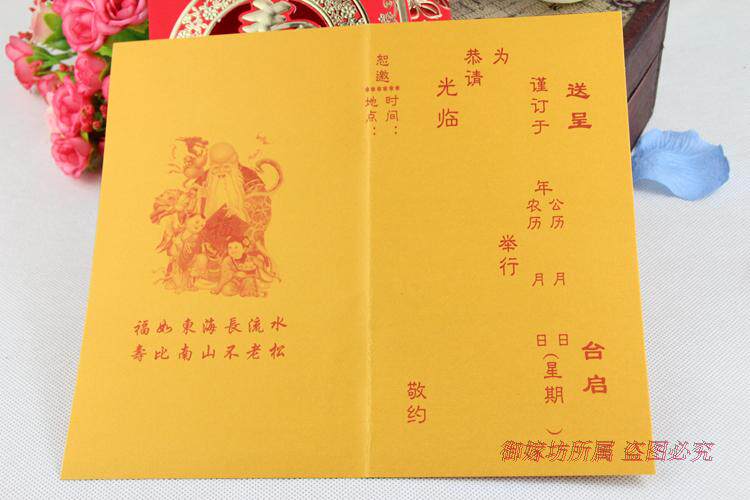 福如東海長流水
壽比南山不老松
送呈 台启
谨订于 年 公历 月 日
农历 月 日(星期 )
为 举行
恭请
光临
敬约
恕邀
******
时间:
地点:
御嫁坊所属 盗图必究